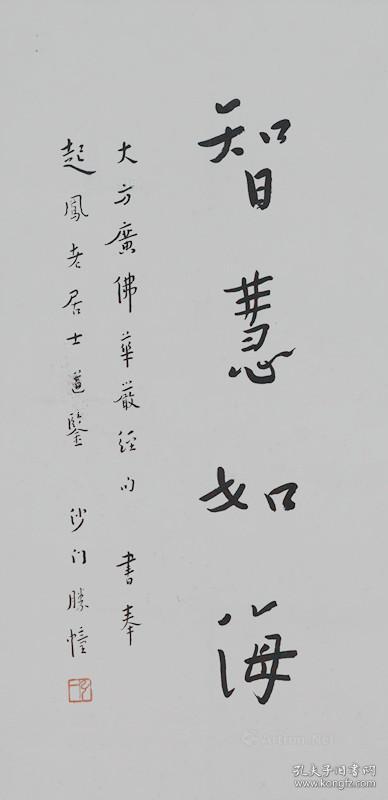 智慧如海
大方廣佛華嚴經句 書奉
起鳳老居士道鑒 沙门勝幢
Artron.Net
孔夫子旧书网